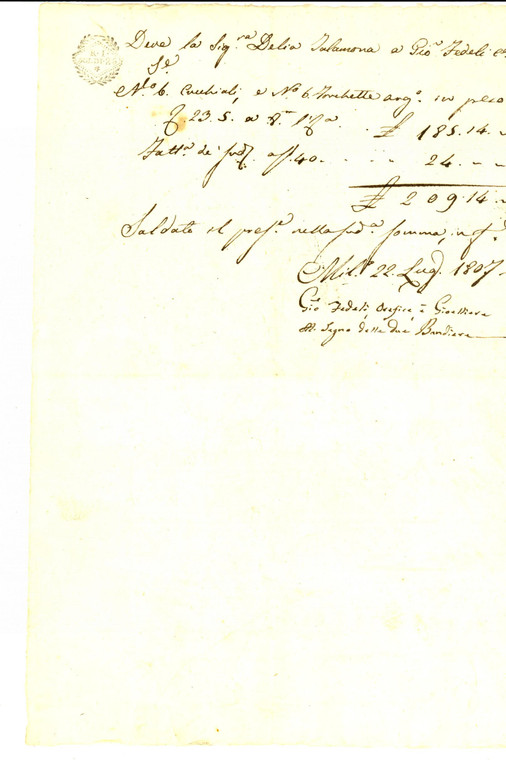 Deve la Sig.ra Delia Talamona a Gio.e Fedeli
N.o 6. Cucchiali, e N.o 6. Forchette arg.o in peso
23. 5. a £ 185.14. ~
Fatt.a de' sud.i a ff. 40. ~ 24. ~ ~
£ 209.14. ~
Saldato il pres.e nella sud.a somma, in f.
Mil.o 22. Lug. 1807.
Gio Fedeli, Orefice, e Gioelliere
al Segno delle due Bandiere